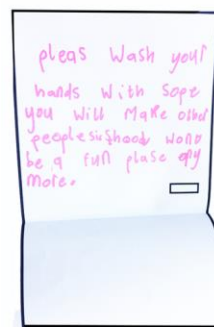 pleas Wash your
hands With Sope
you Will Make other
people sick
be a fun plase eny
more.